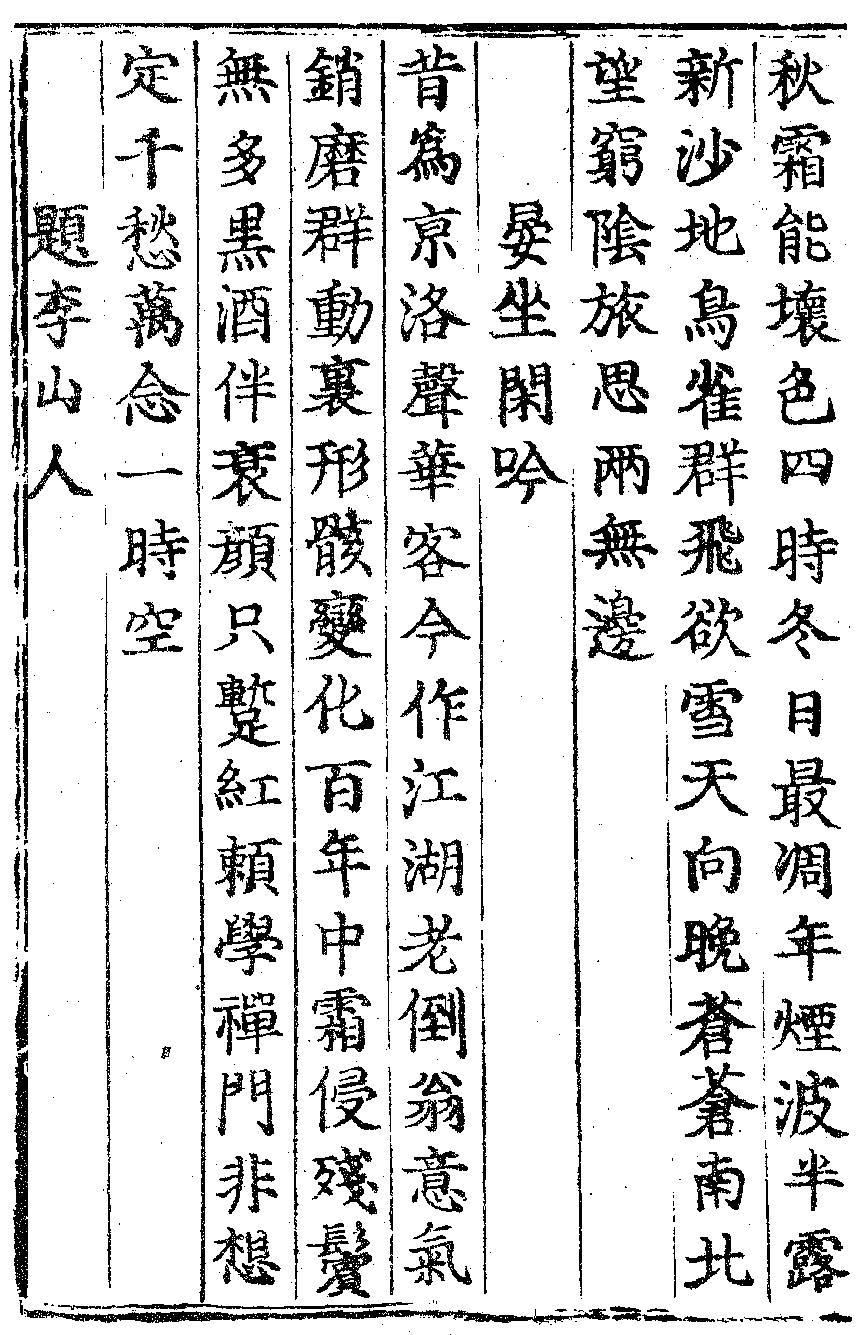 秋霜能壞色四時冬日最凋年煙波半露
新沙地鳥雀群飛欲雪天向晚蒼蒼南北
望窮陰旅思兩無邊
晏坐閑吟
昔為京洛聲華客今作江湖老倒翁意氣
銷磨群動裏形骸變化百年中霜侵殘鬢
無多黑酒伴衰顏只蹔紅賴學禪門非想
定千愁萬念一時空
題李山人